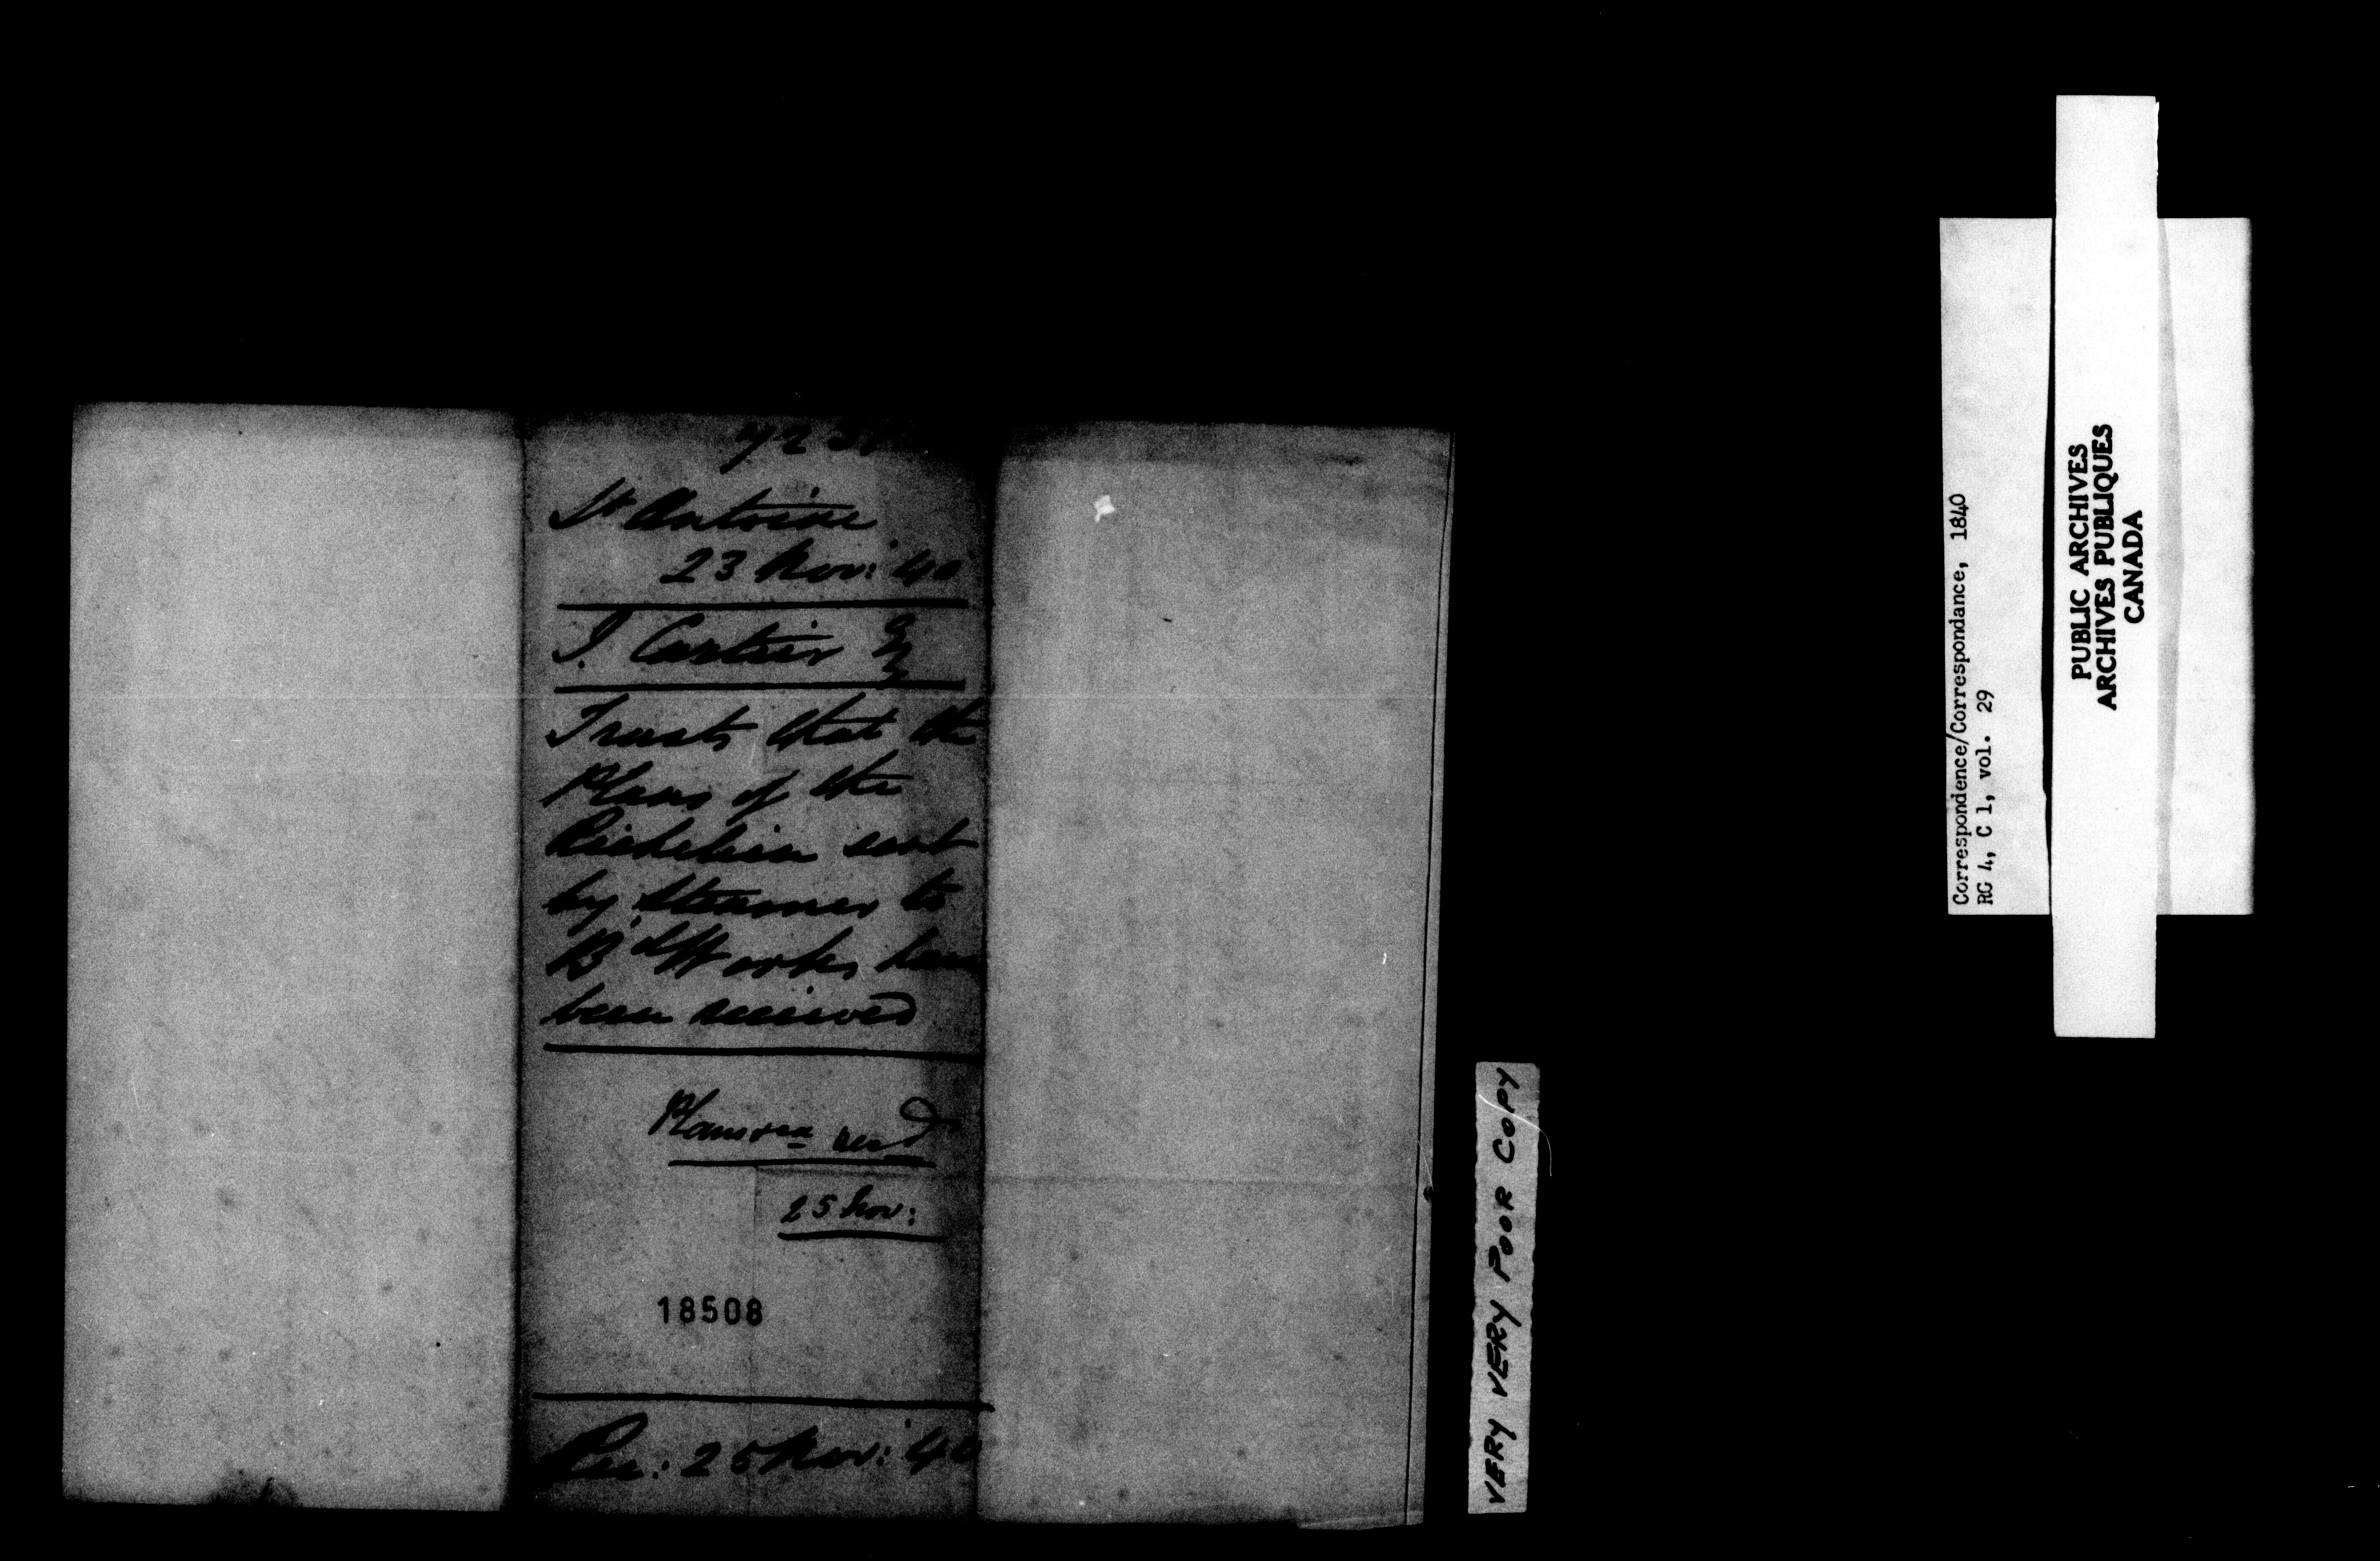 St Antoine
23 Nov: '40
Cartier Esq
Trusts that the
Plans of the
Richelieu sent
by Steamer to
Bd Works have
been received
Plans recd
25 Nov:
18508
Rec: 25 Nov: '40
VERY VERY POOR COPY
Correspondence/Correspondance, 1840
RG 4, C 1, vol. 29
PUBLIC ARCHIVES
ARCHIVES PUBLIQUES
CANADA